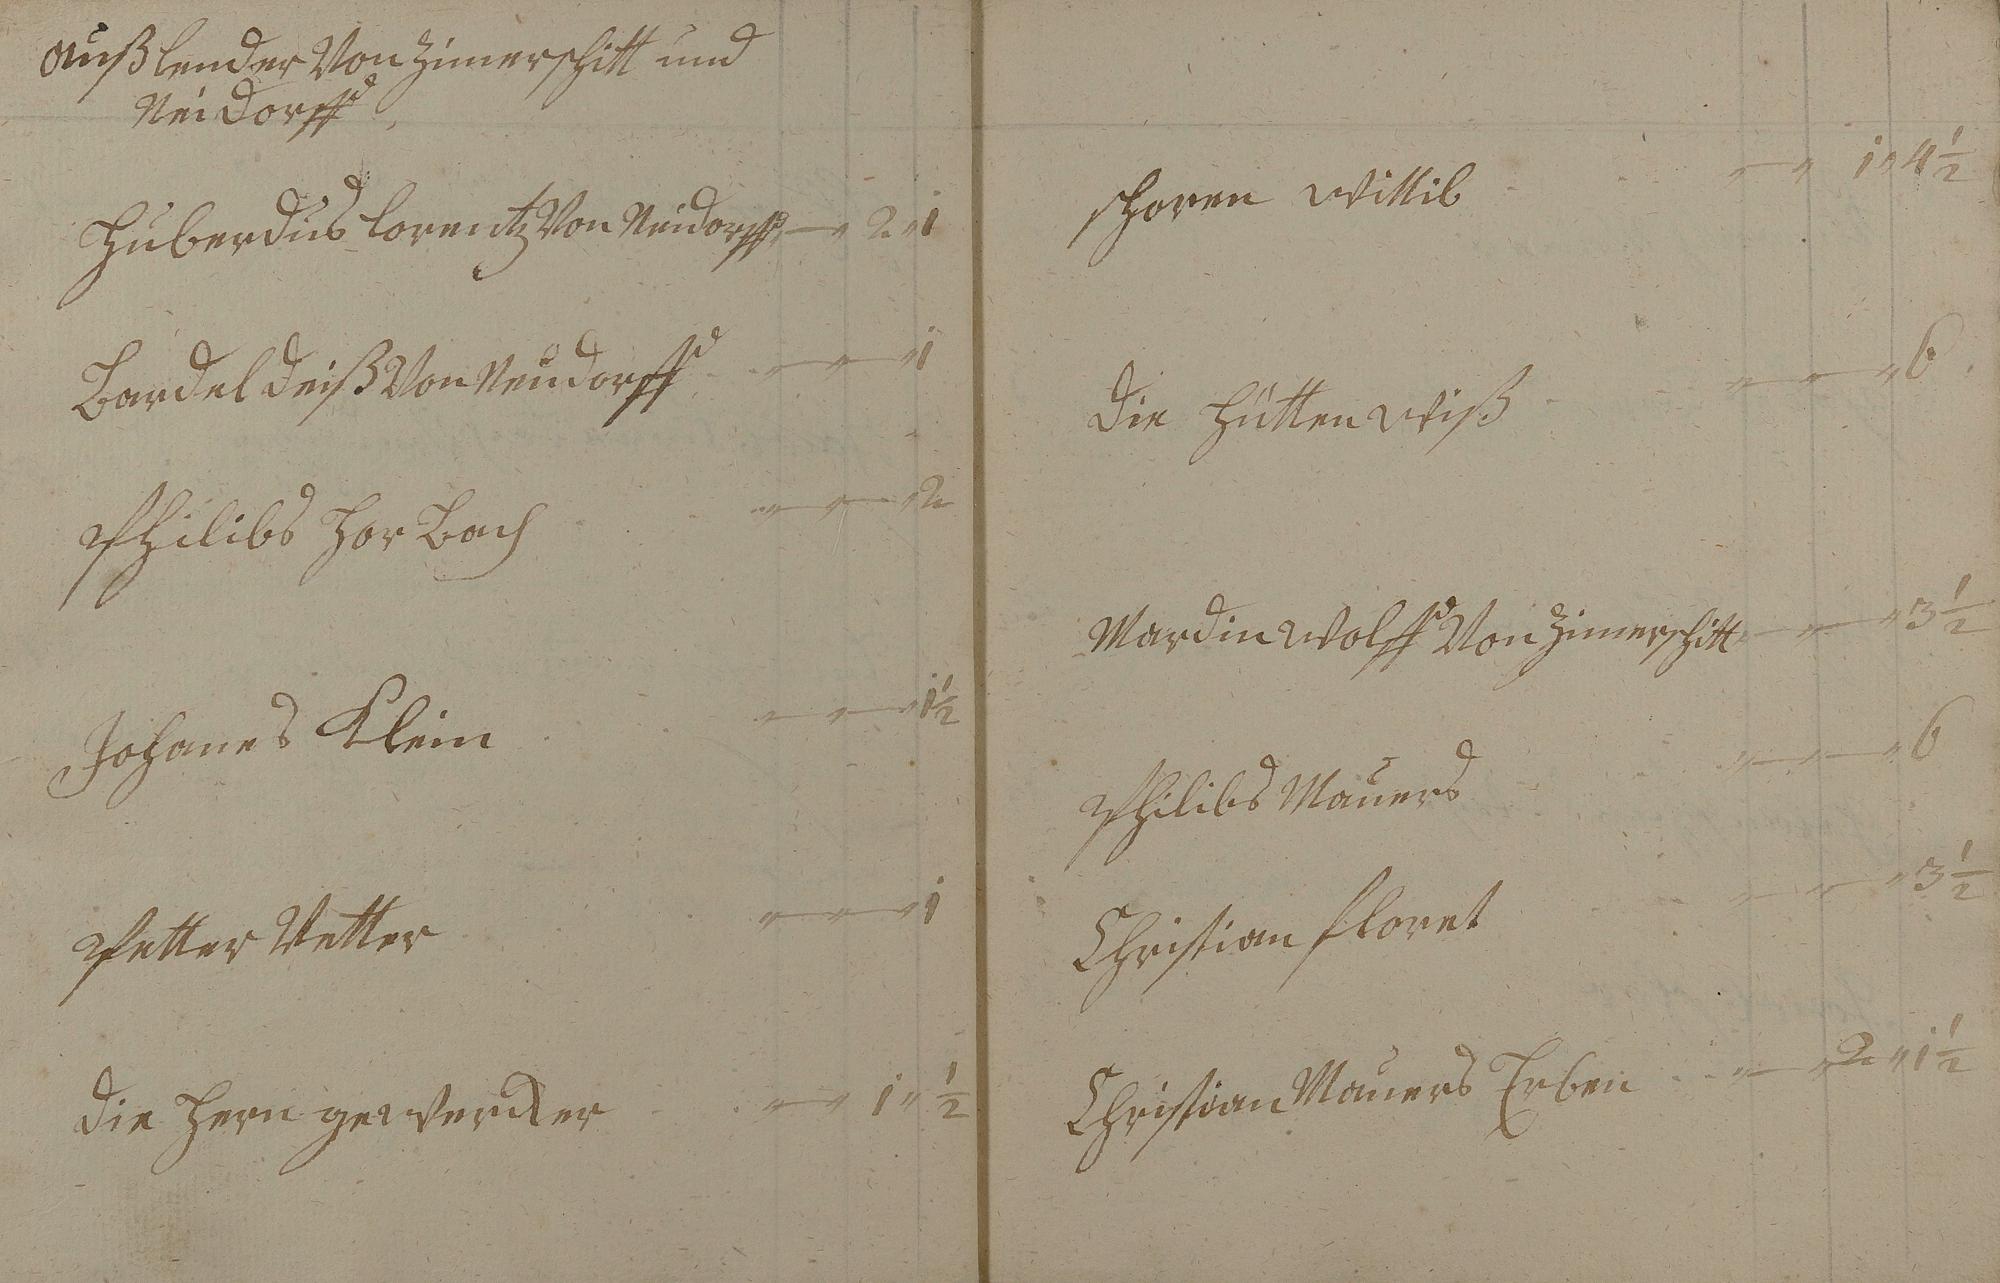 außlender Von Zimerschitt und
Neidorff
Huberdus Lorentz Von Neidorff — " 2 " 1
Bardel Deiß Von Neudorff " — " — " 1
Philibs Horbach " — " — " 2
Johanes Klein " — " — " 1½
Petter Vetter " — " — " 1
die Hern gewercker " — " 1 " ½
schoren Wittib " — " 1 " 4½
die Hütten wiß " — " — " 6
Mardin Wolff Von Zimerschitt " — " — " 3½
Philibs Mauers " — " — " 6
Christian floret " — " — " 3½
Christian Mauers Erben " — " 2 " 1½